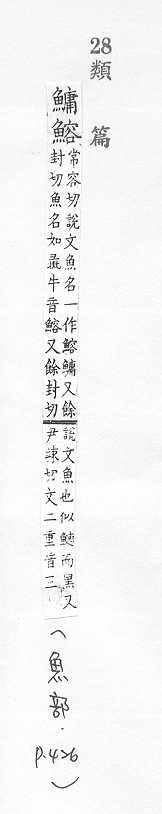 28
類篇
鱅鰫
常容切說文魚名一作鰫鱅又餘
封切魚名如犛牛音鰫又餘封切
說文魚也似鰱而黑又
尹竦切文二重音三
（魚部．
P.426）